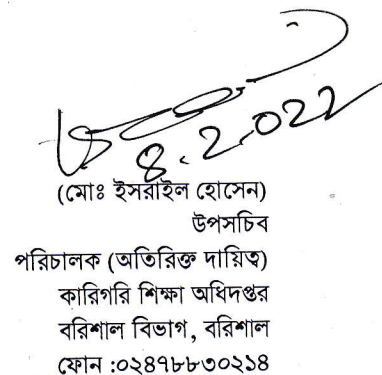 8.2.2022
(মোঃ ইসরাইল হোসেন)
উপসচিব
পরিচালক (অতিরিক্ত দায়িত্ব)
কারিগরি শিক্ষা অধিদপ্তর
বরিশাল বিভাগ, বরিশাল
ফোন :০২৪৭৮৮৩০২১৪